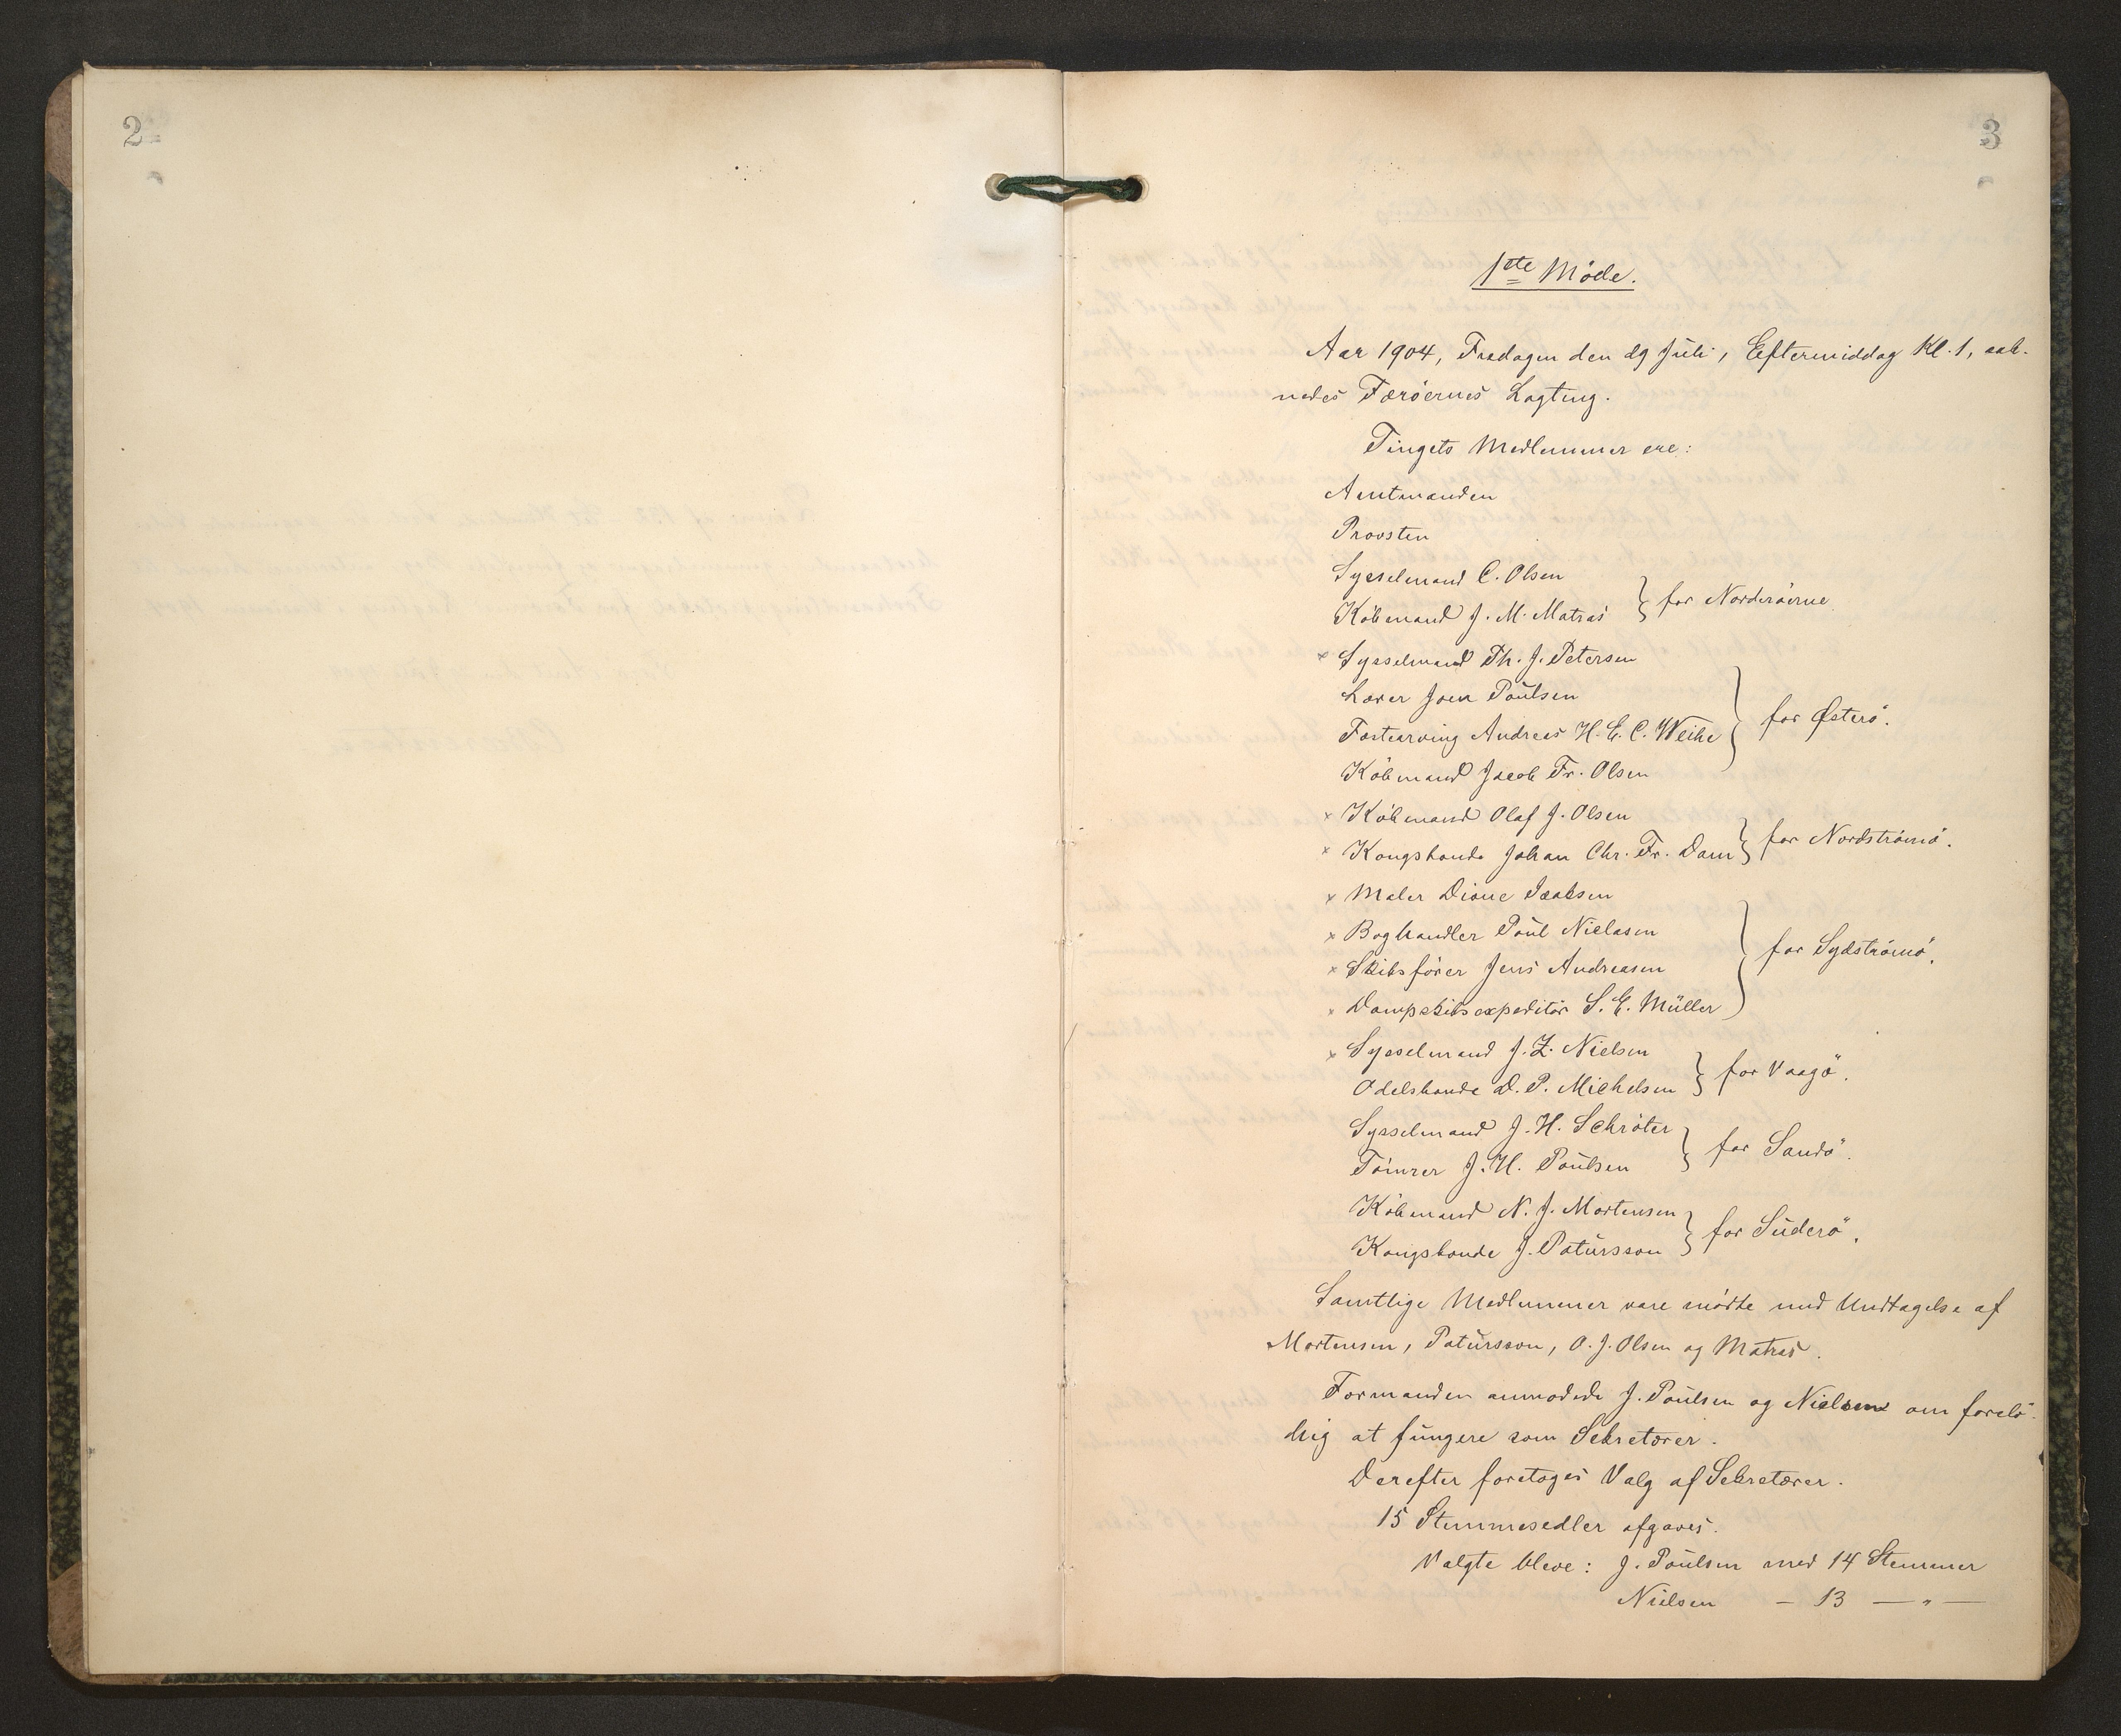 2
3
1ste Möde.
Aar 1904, Fredagen den 29 Juli, Eftermiddag Kl. 1, aab-
nedes Færöernes Lagting.
Tingets Medlemmer ere:
Amtmanden
Provsten
Sysselmand C. Olsen
Köbmand J. M. Matras
} for Norderöerne
× Sysselmand Th. J. Petersen
Lærer Joen Poulsen
Fæstearving Andreas H. E. C. Weihe
Köbmand Jacob Fr. Olsen
} for Østerö.
× Köbmand Olaf J. Olsen
× Kongsbonde Johan Chr. Fr. Dam
} for Nordströmö.
× Maler Dione Isaksen
× Boghandler Poul Nielsen
× Skibsförer Jens Andreasen
× Dampskibsexpeditör S. E. Müller
} for Sydströmö.
× Sysselmand J. Z. Nielsen
Odelsbonde D. P. Michelsen
} for Vaagö.
Sysselmand J. H. Schröter
Tömrer J. H. Poulsen
} for Sandö.
Köbmand N. J. Mortensen
Kongsbonde J. Patursson
} for Suderö.
Samtlige Medlemmer vare mödte med Undtagelse af
Mortensen, Patursson, O. J. Olsen og Matras.
Formanden anmodede J. Poulsen og Nielsen om forelö-
big at fungere som Sekretærer.
Derefter foretoges Valg af Sekretærer.
15 Stemmesedler afgaves.
Valgte bleve: J. Poulsen med 14 Stemmer
Nielsen — 13 — „ —